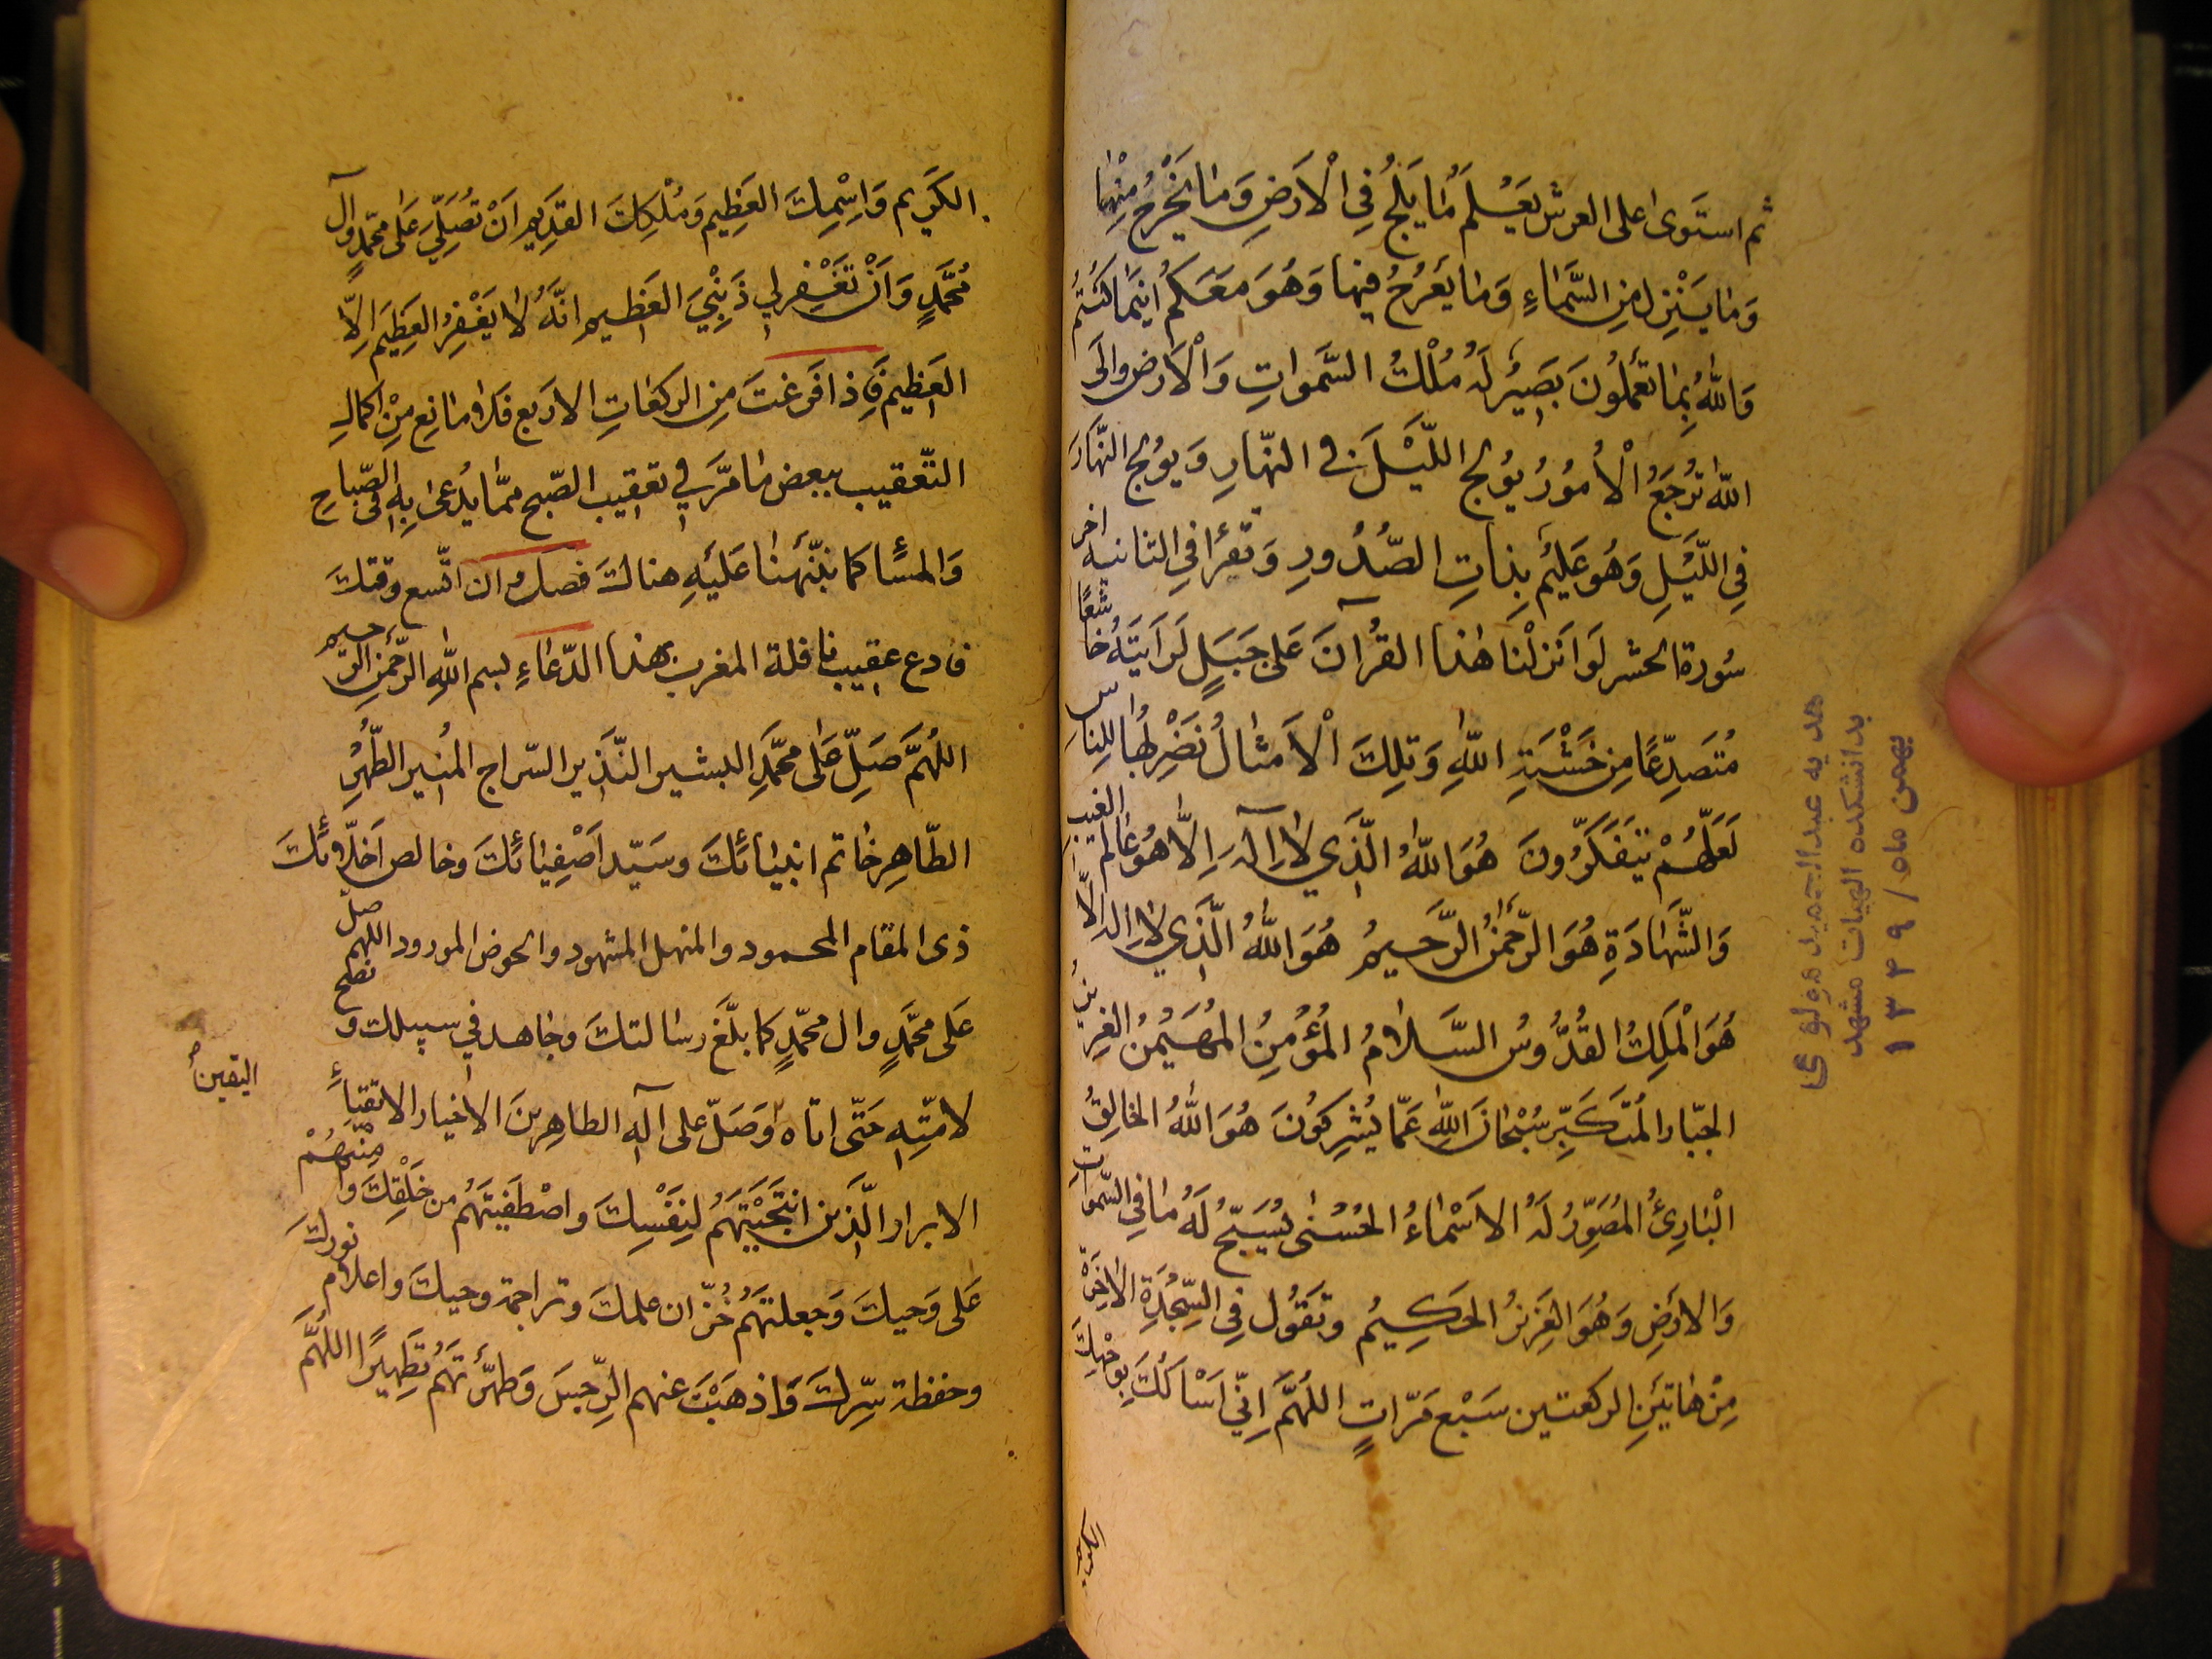 ثم استَوىٰ على العرش يَعْلَمُ مٰا يَلِجُ فِي الْاَرَضِ وَمٰا يَخْرجُ مِنْهٰا
وَمٰا يَنْزِل مِن السَّمٰاءِ وَمٰا يَعْرُجُ فيهٰا وَهُوَ مَعَكُم اينَمٰا كُنتُم
وَاللّٰهُ بِمٰا تعَملُونَ بَصِيٌر لَهُ مُلْكُ السَّمواتِ وَالْاَرَض وَالَى
اللّٰه تُرْجَعُ الْاُمُوُرُ يُولج اللّيْلَ فى النهّارِ وَيوُلج النَّهٰارَ
فِي اللّيَْلِ وَهُو عَليُم بِذٰاتِ الصُّدُورِ وَتقرأ في الثانية اخر
سُورة الحشر لَو اَنزلْنَا هٰذا القُرآنَ عَلى جَبَلٍ لَرَاَيَتهُ خٰاشعًا
مُتَصَدِّعًا مِن خَشْيَةِ اللّٰهِ وَتلِكَ الْاَمثٰالُ نَضْرِبُهٰا لِلنٰاس
لَعَلَّهُمْ يَتفَكَّرُونَ هُوَ اللّٰهُ الَّذَي لٰا اِلٰهَ اِلَّا هُوَ عٰالم الغيب
وَالشَّهٰادَةِ هُوَ الرَّحمٰنُ الرَّحيمُ هُوَ اللّٰهُ الَّذَي لٰا اله الّا
هُوَ الْمَلِكُ القُدُّوسُ السَّلٰامُ المُؤْمِنُ المُهَيْمِنُ العَزيزُ
الجبّار المُتَكَبِّر سُبْحٰانَ اللّٰهِ عَمّا يُشرِكوُنَ هُوَ اللّٰهُ الخالِقُ
الْبٰارِئُ المُصَوِّرُ لَهُ الاسْمٰاءُ الحُسُنٰى يُسَبّحُ لَهُ مٰا فى السّمواتِ
وَالاَرَضِ وَهُوَ العَزيزُ الحَكيمُ وتَقُول فِى السِّجْدَةِ الاٰخِرَة
مِنْ هٰاتَينِ الركعتين سَبْع مَرّاتٍ اللهُمَّ اِنّي اَسْاَلُكَ بوَجْهِكَ
هديه عبدالحميد مولوى
بدانشكده الهيات مشهد
بهمن ماه / ١٣٣٩
الكَرِيم وَاسِْمِكَ العَظِيم وَمُلْكِكَ القَدِيم اَنْ تُصَلِّيَ عَلى محمّدٍ وآل
مُحمَّدٍ وَاَنْ تَغْفِر لي ذَنْبِيَ العَظيم انَّهُ لٰا يَغْفِرُ العَظِيَم اِلّا
العَظِيم فَاِذا فَرَغتَ مِن الركعٰاتِ الاربَع فَلٰا مٰانِع مِنْ اكمال
التّعقيب ببعض مٰا مَرَّ في تعقيب الصّبح ممّا يُدعىٰ بِهِ فى الصّباح
وَالمسٰاءِ كما نبَّهنٰا عَليَهِ هنالكَ فصل وٌان اتّسع وقتك
فادع عقيب نافلة المغرب بهذا الدّعٰاءِ بسم اللّٰهِ الرّحَمنِ الرّحيم
اللهُمَّ صَلِّ عَلىٰ محمَّدٍ البشير النّذير السّراج المُنير الطُّهْرِ
الطّاهِرِ خٰاتم انبيٰائكَ وسَيّد اَصْفِيٰائكَ وخالص اَخلّائكَ
ذى المقام المحمود والمنهل المشهود والحوض المورود اللهم صلّ
عَلى محمَّدٍ وال محمّدٍ كما بلّغَ رسٰالتكَ وجٰاهد في سبيلك ونصح
لامّتِهِ حَتّى اتٰاه اليقين وَصَلّ على آلهِ الطاهِرينَ الاخيار الاتقيٰاءِ
الابرار الّذَين انتَجَبْتَهُمُ لِنَفْسِكَ واصْطَفيتَهُم من خَلْقِكَ وامّنتَهُمْ
عَلى وَحيكَ وَجعلتهَمُ خُزّان علمكَ وتراجمة وحيكَ واعلام نورك
وحفظة سِّركَ وَاذهَبْتَ عنهم الرِّجسَ وَطهَّرْتَهُم تَطهِيرًا اللهُمَّ